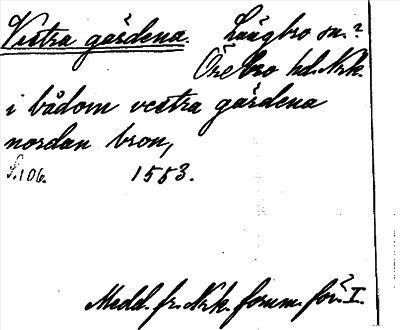 Vestra gärdena. Längbro sn.?
Örebro hd. Nrk.
i bådom vestra gärdena
nordan bron,
S. 106. 1583.
Medd. fr. Nrk. fornm. för. I.